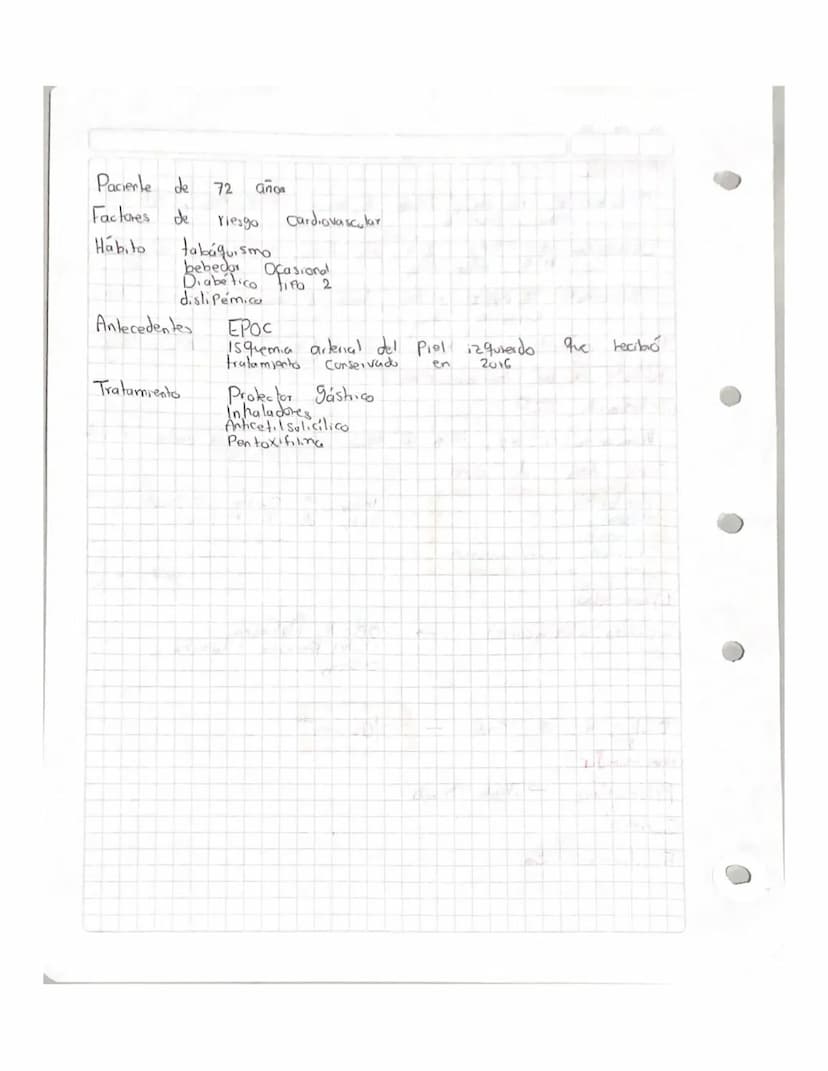 Paciente de 72 años
Factores de riesgo Cardiovascular
Hábito tabáquismo
bebedor Ocasional
Diabético tipo 2
dislipémico
Antecedentes EPOC
Isquemia arterial del Piel izquierdo que recibió
tratamiento Conservado en 2016
Tratamiento Protector gástrico
Inhaladores
Anticetilsalicílico
Pentoxifilina